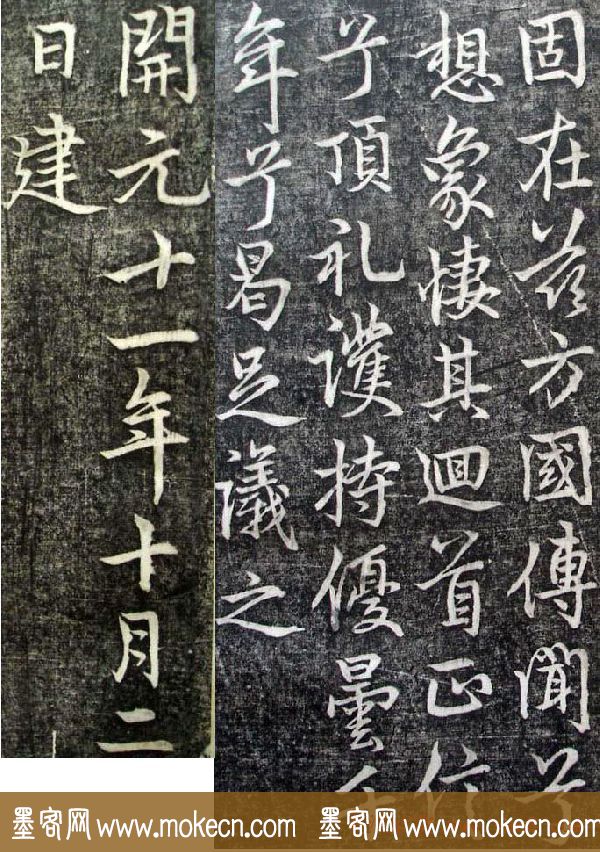 固在兹方國傳聞兮
想象悽其迴首正信
兮頂礼護持優曇千
年兮曷足議之
開元十一年十月二
日建
墨客网 www.mokecn.com 墨客网 www.mokecn.com